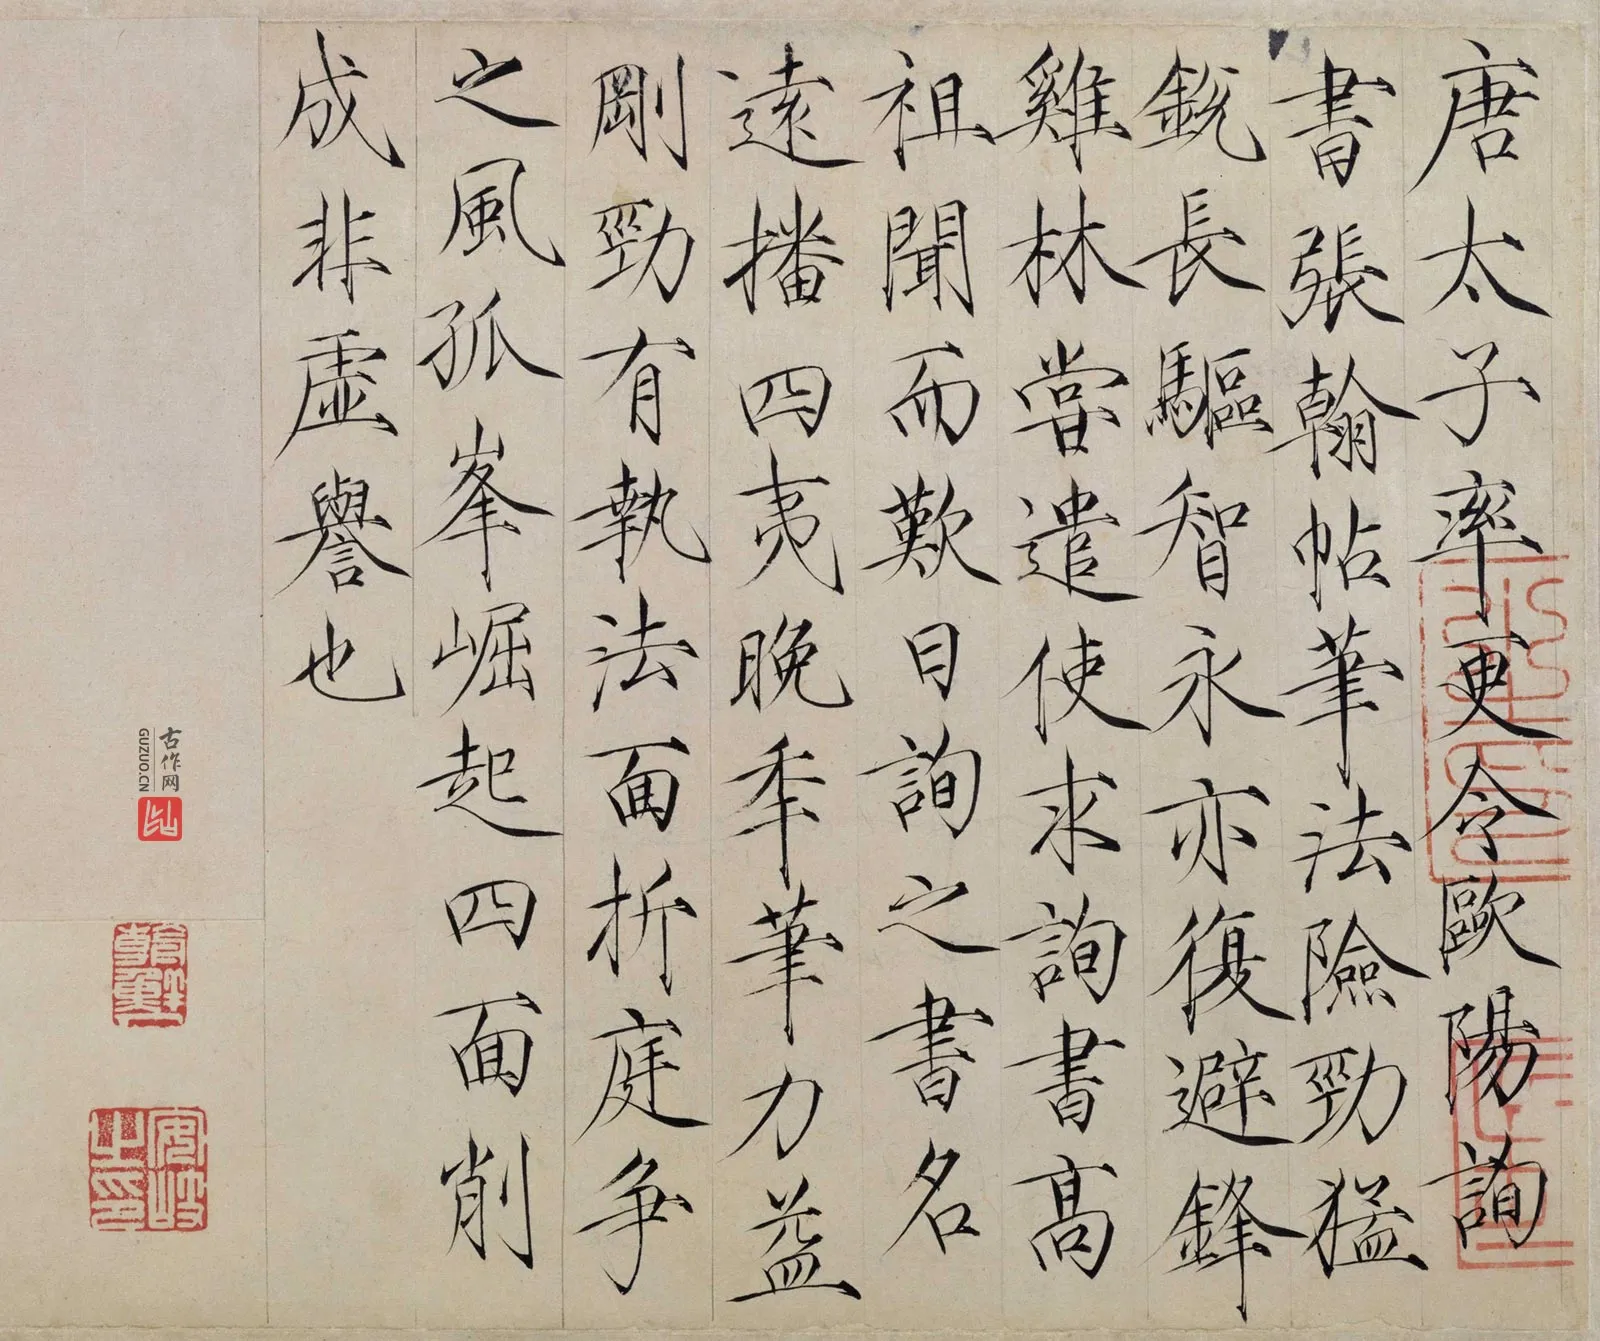 唐太子率更令歐陽詢
書張翰帖筆法險勁猛
銳長驅智永亦復避鋒
雞林嘗遣使求詢書高
祖聞而歎曰詢之書名
遠播四夷晚年筆力益
剛勁有執法面折庭爭
之風孤峯崛起四面削
成非虛譽也
古作网
GUZUO.CN